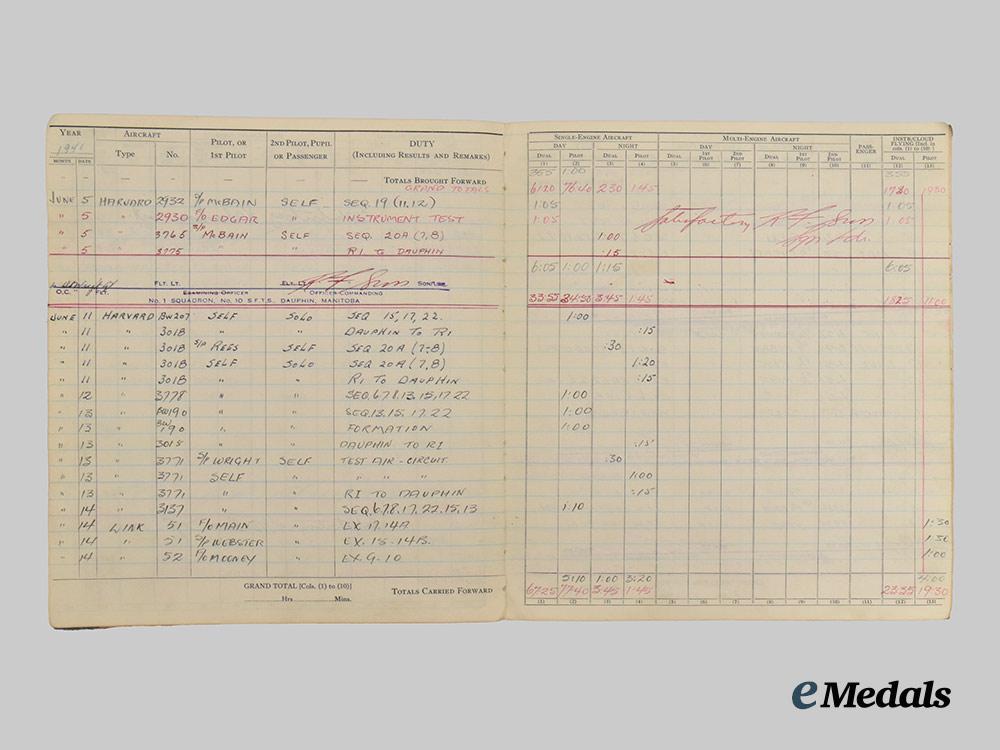 YEAR AIRCRAFT PILOT, OR 2ND PILOT, PUPIL DUTY SINGLE-ENGINE AIRCRAFT MULTI-ENGINE AIRCRAFT PASS- INSTR/CLOUD
1941 Type No. 1ST PILOT OR PASSENGER (INCLUDING RESULTS AND REMARKS) DAY NIGHT DAY NIGHT ENGER FLYING [Incl. in cols. (1) to (10)]
MONTH DATE DUAL PILOT DUAL PILOT DUAL 1ST PILOT 2ND PILOT DUAL 1ST PILOT 2ND PILOT DUAL PILOT
(1) (2) (3) (4) (5) (6) (7) (8) (9) (10) (11) (12) (13)
— — — — — — TOTALS BROUGHT FORWARD 1:00
GRAND TOTALS 76:40 2:30 1:45
JUNE 5 HARVARD 2932 S/P McBAIN SELF SEQ. 19 (11,12) 1:05 1:05
" 5 2930 F/O EDGAR " INSTRUMENT TEST 1:05 Satisfactory 1:05
" 5 " 3765 S/P McBAIN SELF SEQ. 20A (7,8) 1:00
" 5 " 3775 " " RI TO DAUPHIN :15
6:05 1:00 1:15 6:05
FLT. LT. FLT. LT. SQN/LDR.
O.C. FLT. EXAMINING OFFICER OFFICER COMMANDING
No. 1 SQUADRON, No. 10 S.F.T.S., DAUPHIN, MANITOBA 3:45 1:45
JUNE 11 HARVARD BW207 SELF SOLO SEQ 15,17,22. 1:00
" 11 " 3018 " " DAUPHIN TO RI :15
" 11 " 3018 S/P REES SELF SEQ 20A (7-8) :30
" 11 " 3018 SELF SOLO SEQ 20A (7,8) 1:20
" 11 " 3018 " " RI TO DAUPHIN :15
" 12 " 3778 " " SEQ.6,7,8,13,15,17,22 1:00
" 13 " BW190 " " SEQ.13,15,17,22 1:00
" 13 " BW190 " " FORMATION 1:00
" 13 " 3018 " " DAUPHIN TO RI :15
" 13 " 3771 S/P WRIGHT SELF TEST AIR-CIRCUIT. :30
" 13 " 3771 SELF " " " " 1:00
" 13 " 3771 " " RI TO DAUPHIN :15
" 14 " 3137 " " SEQ.6,7,8,17,22,15,13 1:10
" 14 LINK 51 F/O MAIN " EX.17,14A 1:30
" 14 " 51 S/P WEBSTER " EX. 15-14B. 1:30
" 14 52 F/O MOONEY " EX.9-10 1:00
GRAND TOTAL [Cols. (1) to (10)] 5:10 1:00 3:20 4:00
Hrs Mins. TOTALS CARRIED FORWARD 67:25 77:40 3:45 1:45 23:35 19:30
(1) (2) (3) (4) (5) (6) (7) (8) (9) (10) (11) (12) (13)
eMedals